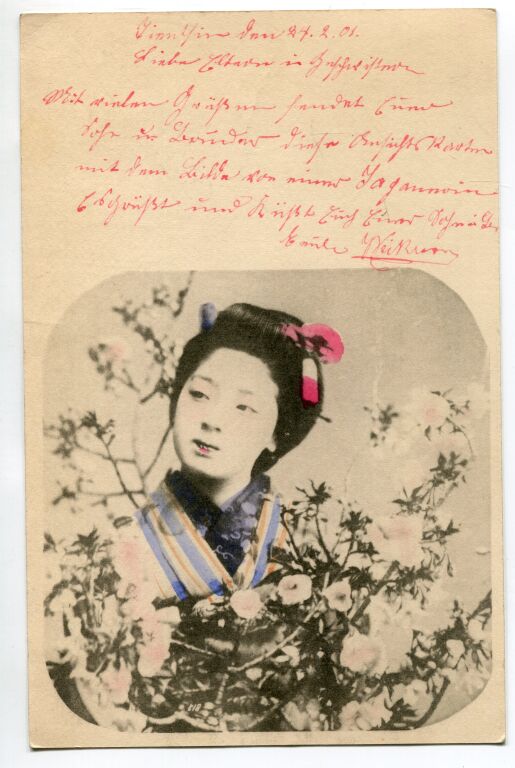 Tientsin den 24.2.01.
Liebe Eltern u Geschwistern
Mit vielen Grüßen sendet Euer
Sohn u. Bruder diese Ansichtskarten
mit dem Bilde von einer Japanerin
Es grüßt und küßt Euch Euer Sohn u Br
Emil
618